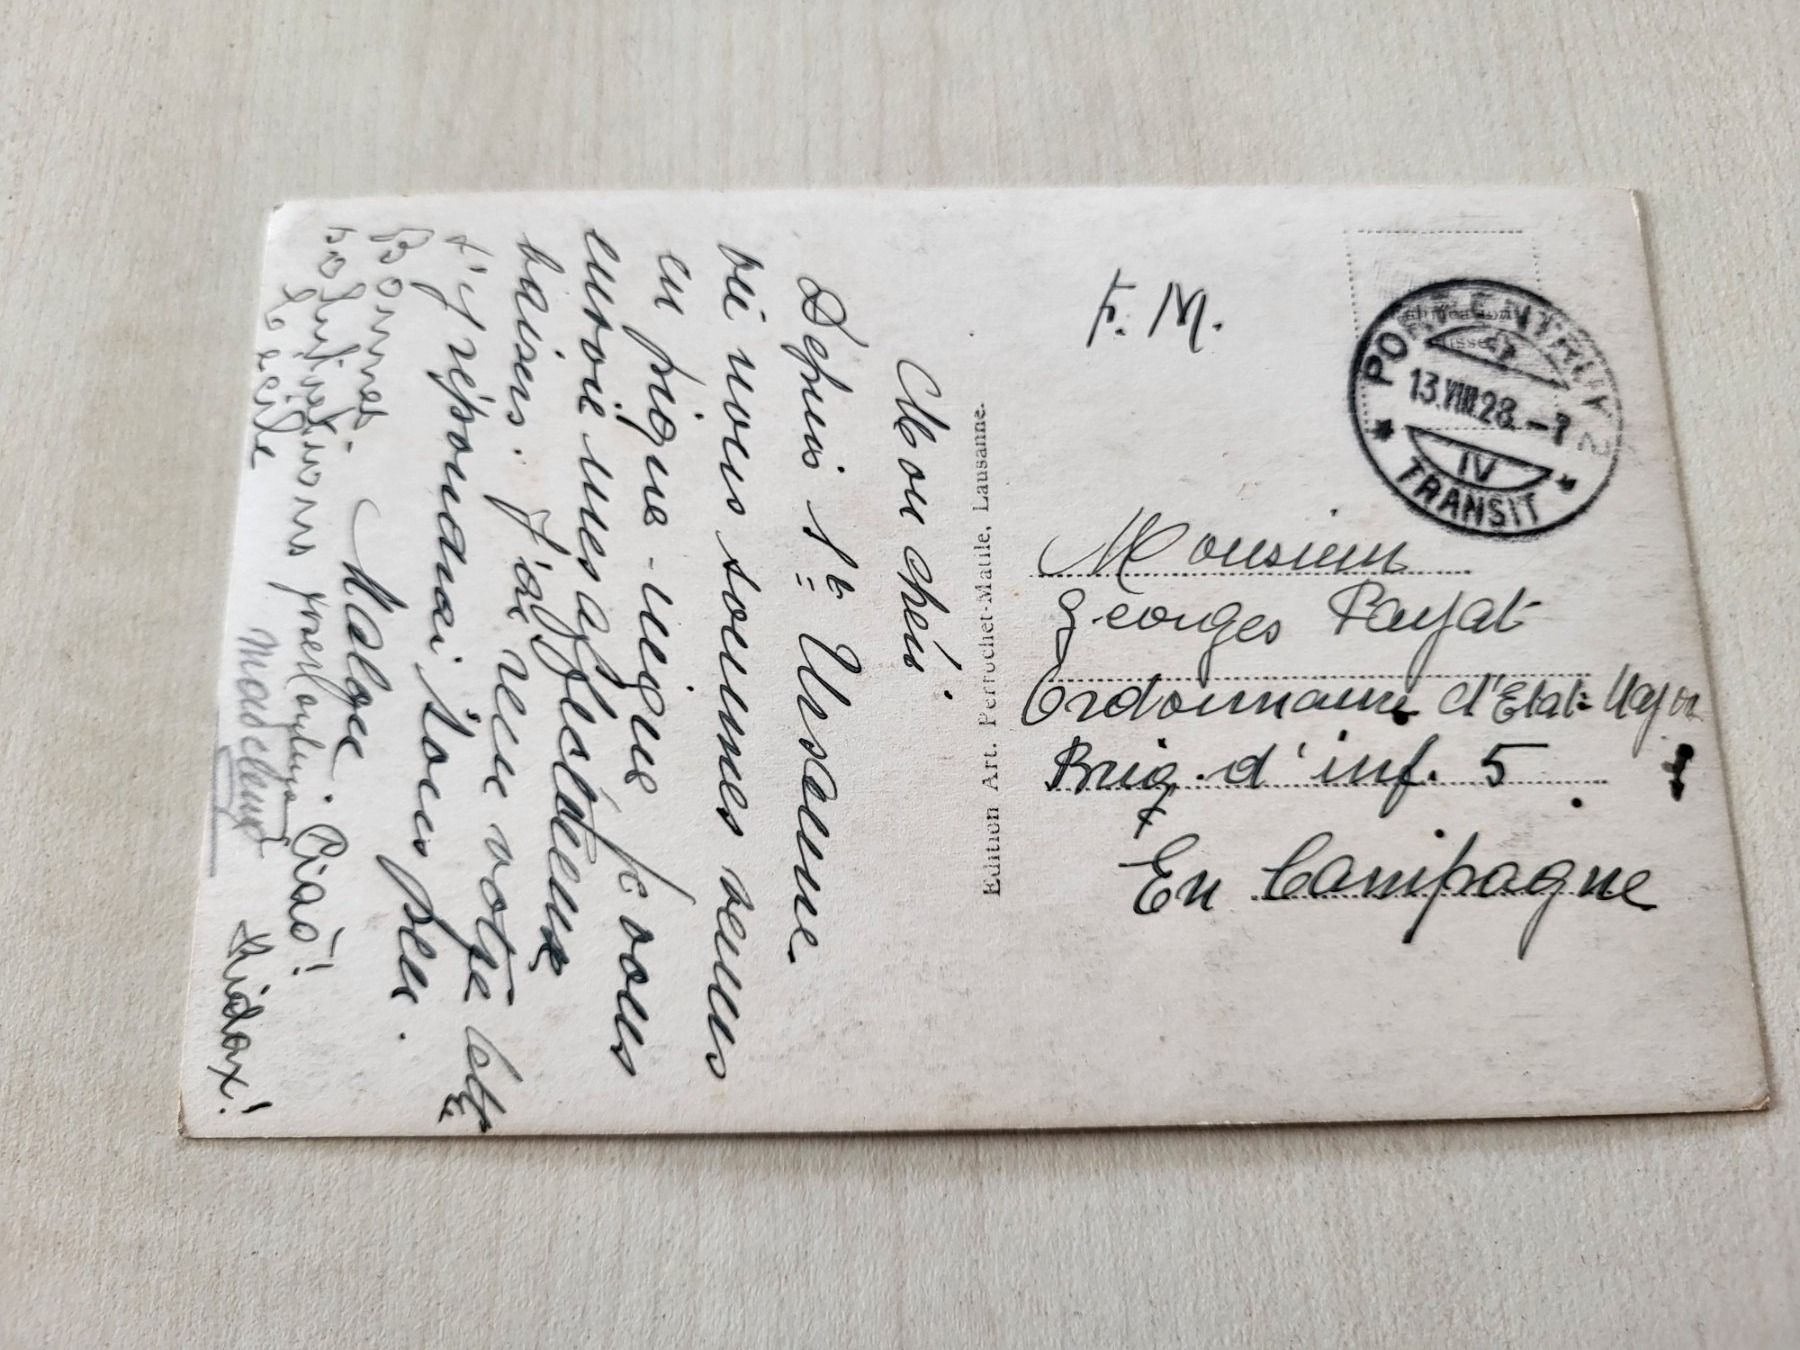 Mon chéri.
Depuis Ste Ursanne
où nous sommes venus
en pique-nique je vous
envoie mes affectueux
baisers. J'ai reçu votre lettre
et j'y répondrai sous peu.
Malou. Ciao!
Bonnes
salutations
Madeleine
Edition Art. Perrochet-Matile, Lausanne.
F. M.
PORRENTRUY 2
13.VIII.28.-7
IV
TRANSIT
Monsieur
Georges Payat
Ordonnance d'Etat-Major
Brig. d'inf. 5
En Campagne